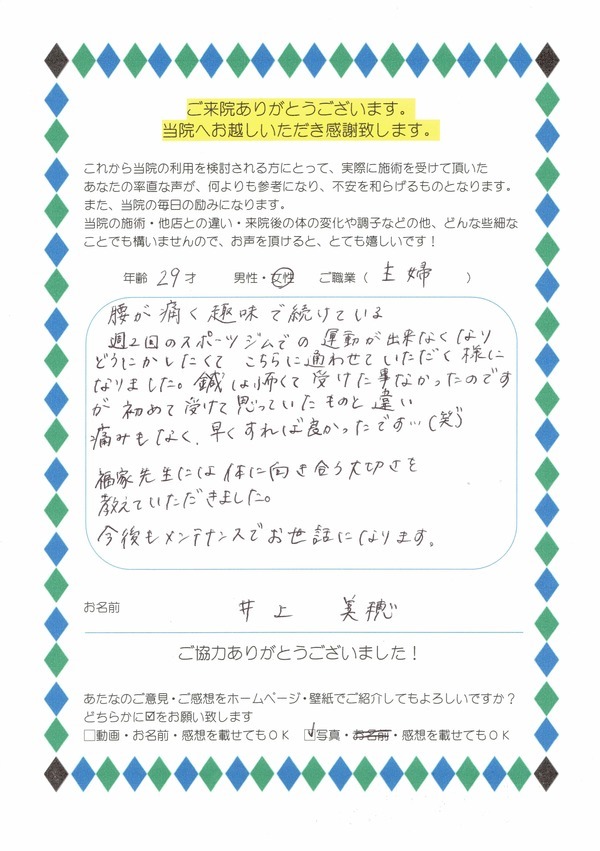 ご来院ありがとうございます。
当院へお越しいただき感謝致します。
これから当院の利用を検討される方にとって、実際に施術を受けて頂いた
あなたの率直な声が、何よりも参考になり、不安を和らげるものとなります。
また、当院の毎日の励みになります。
当院の施術・他店との違い・来院後の体の変化や調子などの他、どんな些細な
ことでも構いませんので、お声を頂けると、とても嬉しいです！
年齢 29 才　男性・女性　ご職業（ 主婦 ）
腰が痛く趣味で続けている
週2回のスポーツジムでの運動が出来なくなり
どうにかしたくて こちらに通わせていただく様に
なりました。鍼は怖くて受けた事なかったのです
が 初めて受けて思っていたものと違い
痛みもなく、早くすれば良かったです…（笑）
福家先生には体に向き合う大切さを
教えていただきました。
今後もメンテナンスでお世話になります。
お名前　井上　美穂
ご協力ありがとうございました！
あたなのご意見・ご感想をホームページ・壁紙でご紹介してもよろしいですか？
どちらかに☑をお願い致します
□動画・お名前・感想を載せてもOK　☑写真・お名前・感想を載せてもOK